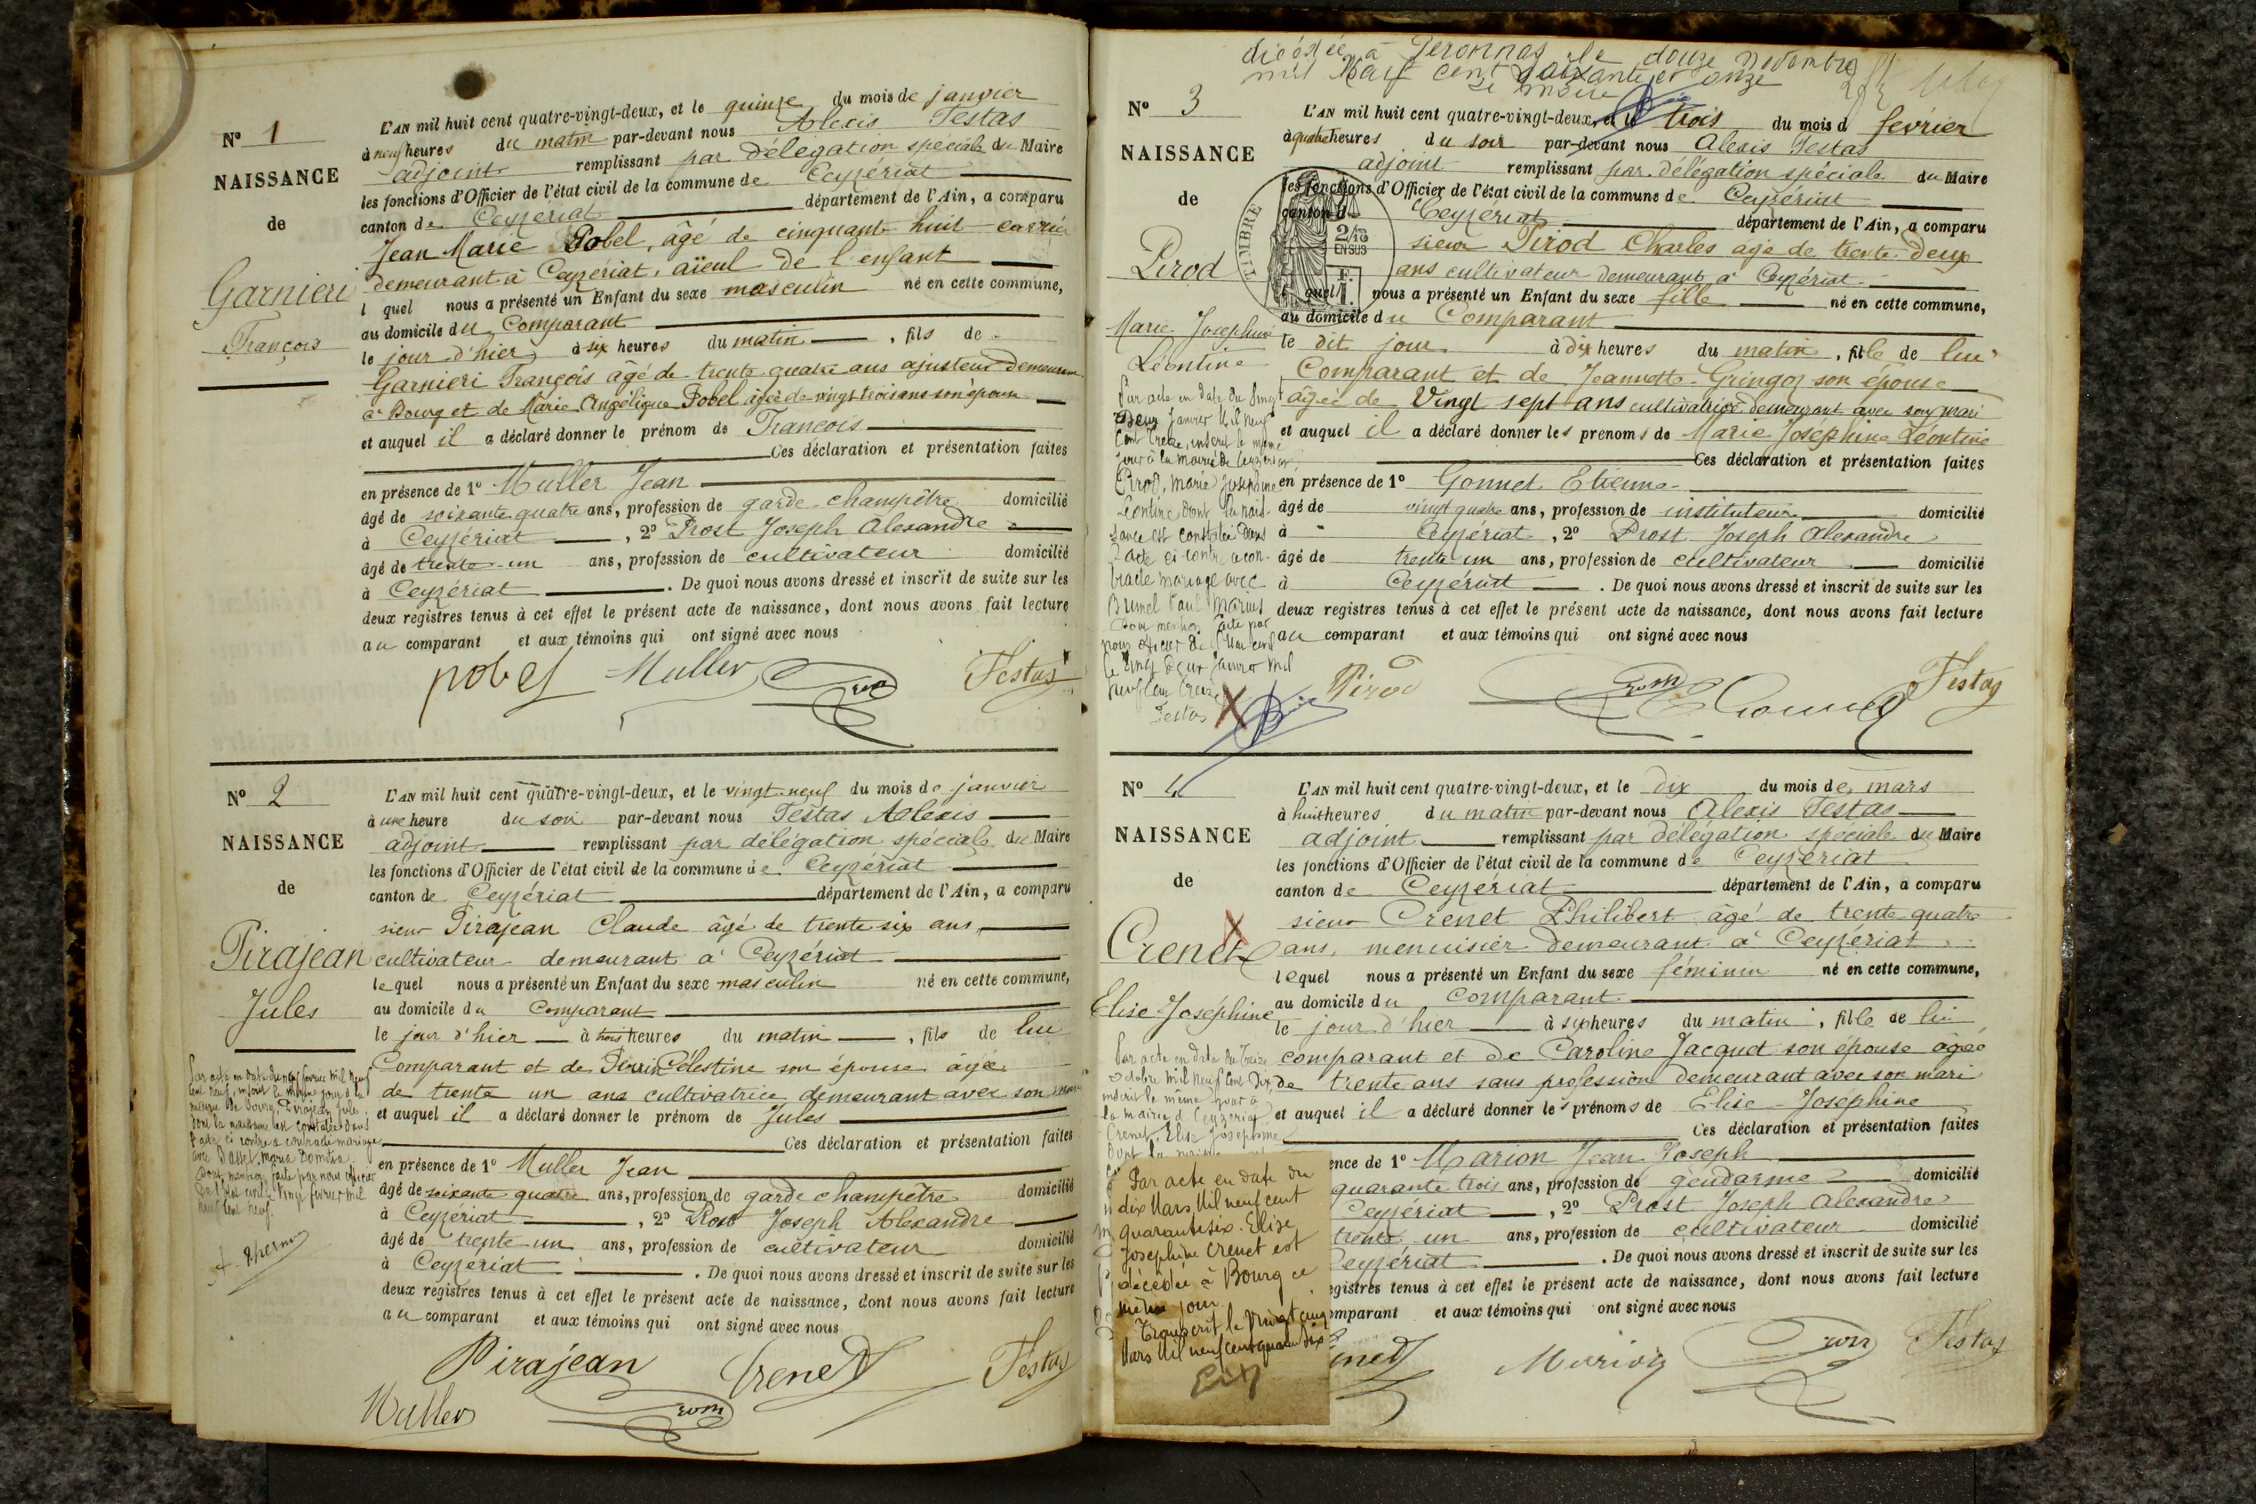 N° 1
NAISSANCE
de
Garnieri
François
L'AN mil huit cent quatre-vingt-deux, et le quinze du mois de janvier
à neuf heures du matin par-devant nous Alexis Testas
adjoint remplissant par délégation spéciale du Maire
les fonctions d'Officier de l'état civil de la commune de Ceyzériat
canton de Ceyzériat département de l'Ain, a comparu
Jean Marie Pobel, âgé de cinquante huit
demeurant à Ceyzériat, aïeul de l'enfant
l quel nous a présenté un Enfant du sexe masculin né en cette commune,
au domicile du Comparant
le jour d'hier à six heures du matin, fils de
Garnieri François agé de trente quatre ans ajusteur demeurant
à Bourg et de Marie Angélique Pobel âgée de vingt trois ans son épouse
et auquel il a déclaré donner le prénom de François
Ces déclaration et présentation faites
en présence de 1° Muller Jean
âgé de soixante quatre ans, profession de garde champêtre domicilié
à Ceyzériat, 2° Prost Joseph Alexandre
âgé de trente un ans, profession de cultivateur domicilié
à Ceyzériat. De quoi nous avons dressé et inscrit de suite sur les
deux registres tenus à cet effet le présent acte de naissance, dont nous avons fait lecture
au comparant et aux témoins qui ont signé avec nous
pobel Muller Testas
N° 2
NAISSANCE
de
Pirajean
Jules
L'AN mil huit cent quatre-vingt-deux, et le vingt-neuf du mois de janvier
à une heure du soir par-devant nous Testas Alexis
adjoint remplissant par délégation spéciale du Maire
les fonctions d'Officier de l'état civil de la commune de Ceyzériat
canton de Ceyzériat département de l'Ain, a comparu
sieur Pirajean Claude âgé de trente six ans,
cultivateur demeurant à Ceyzériat
lequel nous a présenté un Enfant du sexe masculin né en cette commune,
au domicile du Comparant
le jour d'hier à trois heures du matin, fils de lui
Comparant et de Célestine son épouse âgée
de trente un ans cultivatrice demeurant avec son mari
et auquel il a déclaré donner le prénom de Jules
Ces déclaration et présentation faites
en présence de 1° Muller Jean
âgé de soixante quatre ans, profession de garde champêtre domicilié
à Ceyzériat, 2° Prost Joseph Alexandre
âgé de trente un ans, profession de cultivateur domicilié
à Ceyzériat. De quoi nous avons dressé et inscrit de suite sur les
deux registres tenus à cet effet le présent acte de naissance, dont nous avons fait lecture
au comparant et aux témoins qui ont signé avec nous
Par acte en date du neuf février mil neuf
cent neuf, inscrit le même jour à la
mairie de Bourg, Pirajean Jules
dont la naissance est constatée dans
l'acte ci contre a contracté mariage
avec Maria
Dont mention faite par nous officier
de l'état civil le vingt février mil
neuf cent neuf.
Pirajean Crenet Testas
Muller
décédée à Peronnas le douze novembre
mil neuf cent soixante et onze
Le Maire
N° 3
NAISSANCE
de
Pirod
Marie Joséphine
Léontine
TIMBRE
2/10
EN SUS
L'AN mil huit cent quatre-vingt-deux, et le trois du mois d février
à quatre heures du soir par-devant nous Alexis Testas
adjoint remplissant par délégation spéciale du Maire
les fonctions d'Officier de l'état civil de la commune de Ceyzériat
canton d Ceyzériat département de l'Ain, a comparu
sieur Pirod Charles agé de trente deux
ans cultivateur demeurant à Ceyzériat
l quel nous a présenté un Enfant du sexe fille né en cette commune,
au domicile du Comparant
le dit jour à dix heures du matin, fille de lui
Comparant et de Jeannette Gringoz son épouse
âgée de Vingt sept ans cultivatrice demeurant avec son mari
et auquel il a déclaré donner les prenoms de Marie Joséphine Léontine
Ces déclaration et présentation faites
en présence de 1° Gonnet Etienne
âgé de vingt quatre ans, profession de instituteur domicilié
à Ceyzériat, 2° Prost Joseph Alexandre
âgé de trente un ans, profession de cultivateur domicilié
à Ceyzériat. De quoi nous avons dressé et inscrit de suite sur les
deux registres tenus à cet effet le présent acte de naissance, dont nous avons fait lecture
au comparant et aux témoins qui ont signé avec nous
Par acte en date du vingt
Deux Janvier Mil neuf
Cent treize, inscrit le même
jour à la mairie de Ceyzériat,
Pirod, Marie Joséphine
Léontine dont la nais-
sance est constatée dans
l'acte ci-contre a con-
tracté mariage avec
Brunel Paul Marius
Dont mention faite par
nous officier de l'état civil
le vingt deux Janvier mil
neuf cent treize
Testas
Pirod Gonnet Testas
N° 4
NAISSANCE
de
Crenet
Elise Joséphine
L'AN mil huit cent quatre-vingt-deux, et le dix du mois de mars
à huit heures du matin par-devant nous Alexis Testas
adjoint remplissant par délégation spéciale du Maire
les fonctions d'Officier de l'état civil de la commune de Ceyzériat
canton de Ceyzériat département de l'Ain, a comparu
sieur Crenet Philibert âgé de trente quatre
ans, menuisier demeurant à Ceyzériat
lequel nous a présenté un Enfant du sexe féminin né en cette commune,
au domicile du Comparant
le jour d'hier à six heures du matin, fille de lui
comparant et de Caroline Jacquet son épouse agée
de trente ans sans profession demeurant avec son mari
et auquel il a déclaré donner les prénoms de Elise Joséphine
Ces déclaration et présentation faites
ence de 1° Marion Jean Joseph
quarante trois ans, profession de gendarme domicilié
Ceyzériat, 2° Prost Joseph Alexandre
trente un ans, profession de cultivateur domicilié
Ceyzériat. De quoi nous avons dressé et inscrit de suite sur les
egistres tenus à cet effet le présent acte de naissance, dont nous avons fait lecture
omparant et aux témoins qui ont signé avec nous
Par acte en date du treize
octobre mil neuf cent dix,
inscrit le même jour à
la mairie de Ceyzériat
Crenet, Elise Joséphine
dont la
Par acte en date du
dix Mars Mil neuf cent
quarante six. Elise
Joséphine Crenet est
décédée à Bourg ce
même jour
Transcrit le vingt cinq
Mars Mil neuf cent quarante six
Marion Testas